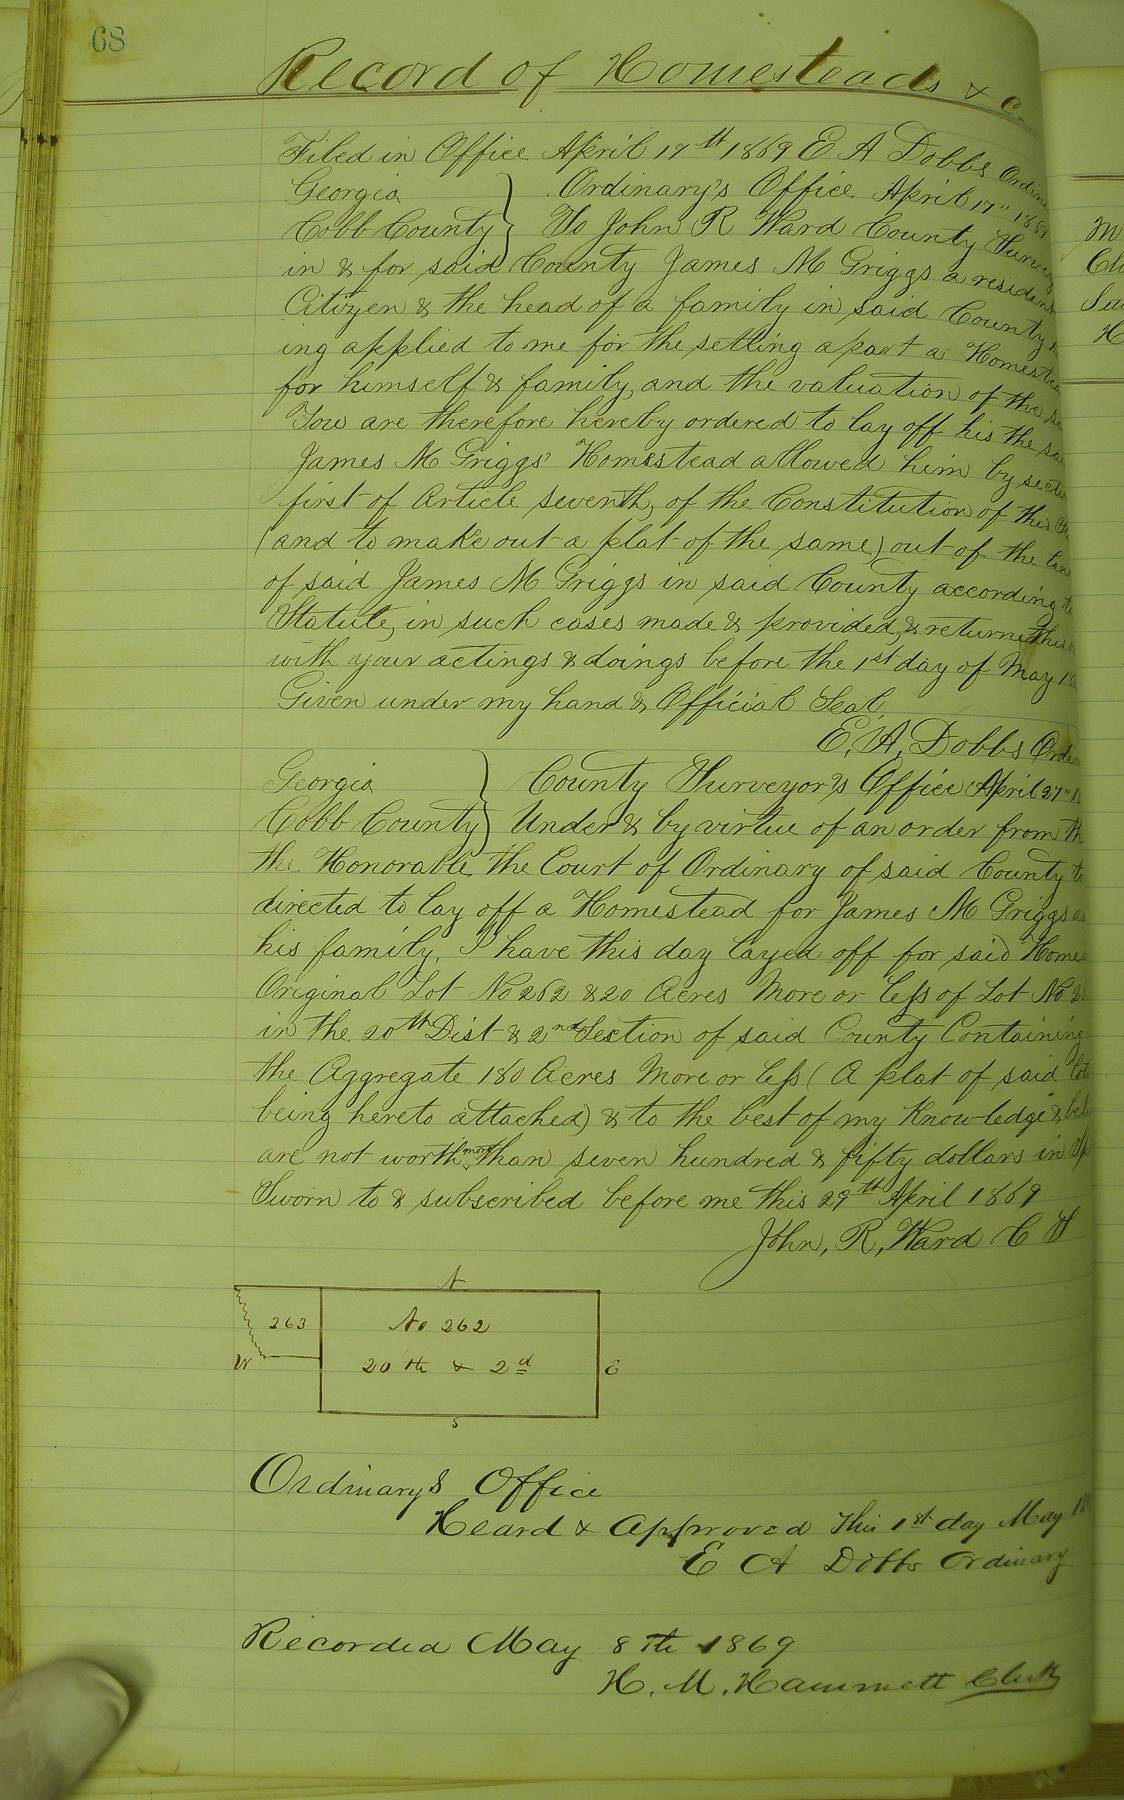 68
Record of Homesteads & C
Filed in Office April 17th 1869 E A Dobbs
Georgia } Ordinary's Office April 17"
Cobb County } To John R Ward County
in & for said County James M Griggs a resident
Citizen & the head of a family in said County
ing applied to me for the setting apart a
for himself & family, and the valuation of the
You are therefore hereby ordered to lay off his the
James M Griggs' Homestead allowed him by
first of Article seventh, of the Constitution of this
(and to make out a plat of the same) out of the
of said James M Griggs in said County according
Statute, in such cases made & provided, & return
with your actings & doings before the 1st day of May
Given under my hand & Official Seal,
E. A. Dobbs
Georgia } County Surveyor's Office April 27"
Cobb County } Under & by virtue of an order from
the Honorable the Court of Ordinary of said County
directed to lay off a Homestead for James M Griggs
his family, I have this day layed off for said
Original Lot No 262 & 20 Acres More or less of Lot No
in the 20th Dist & 2nd Section of said County Containing
the Aggregate 180 Acres More or less (A plat of said
being hereto attached) & to the best of my Knowledge &
are not worth more than seven hundred & fifty dollars in
Sworn to & subscribed before me this 29th April 1869
John, R, Ward C S
N
263 No 262
W 20th & 2d E
S
Ordinarys Office
Heard & Approved This 1st day May
E A Dobbs Ordinary
Recorded May 8th 1869
H. M. Hammett Clerk